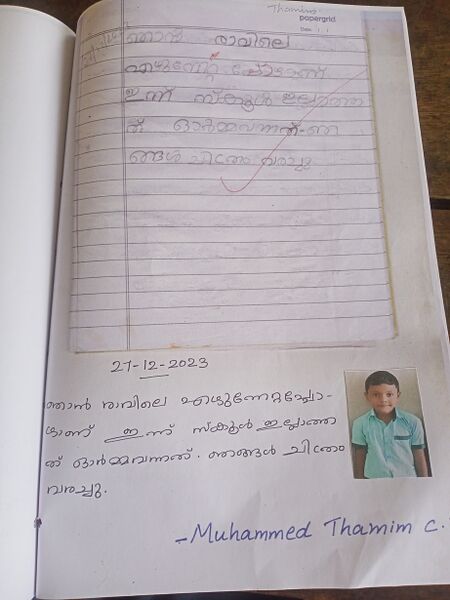 Thamim
papergrid
Date: / /
ഞാൻ രാവിലെ
എഴുന്നേറ്റ പ്പോഴാണ്
ഇന്ന് സ്കൂൾ ഇല്ലാത്ത
ത് ഓർമ്മവന്നത്-ഞ
ങ്ങൾ ചിത്രം വരച്ചു
27-12-2023
ഞാൻ രാവിലെ എഴുന്നേറ്റപ്പോ-
ഴാണ് ഇന്ന് സ്കൂൾ ഇല്ലാത്ത
ത് ഓർമ്മവന്നത്. ഞങ്ങൾ ചിത്രം
വരച്ചു.
-Muhammed Thamim C.